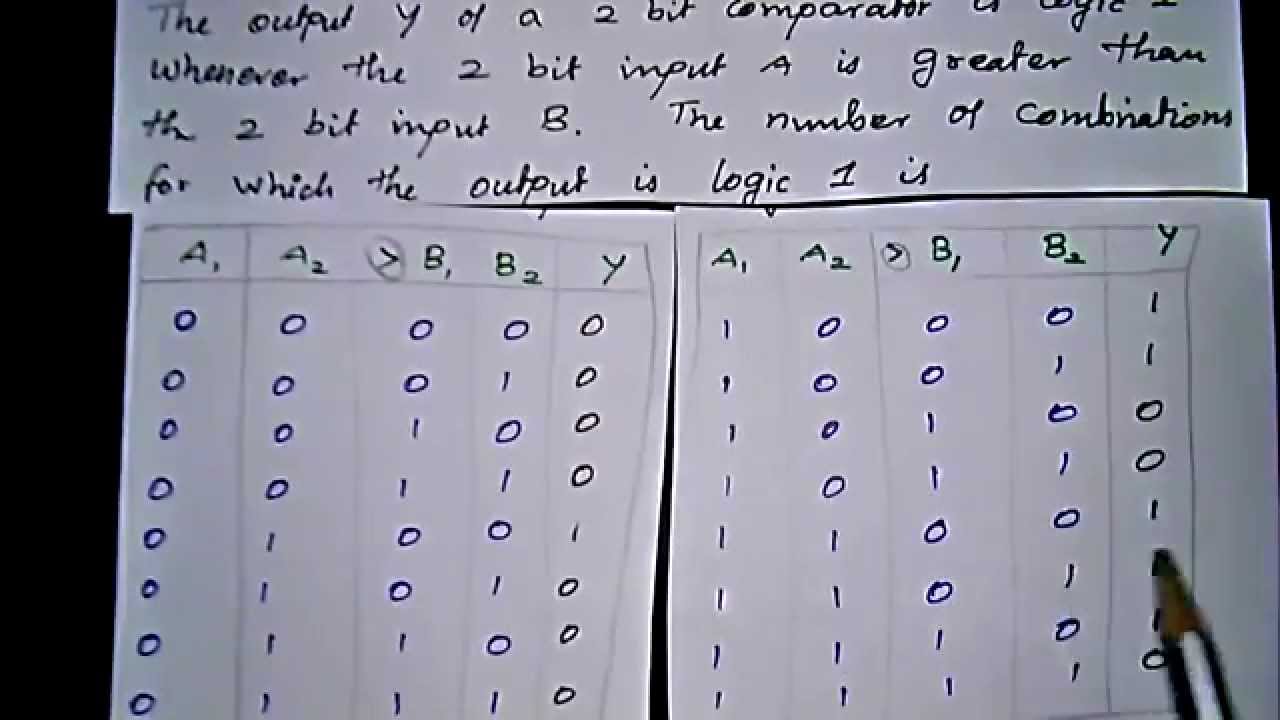 The output Y of a 2 bit comparator is logic 1
whenever the 2 bit input A is greater than
th 2 bit input B. The number of combinations
for which the output is logic 1 is
A1 A2 > B1 B2 Y
0 0 0 0 0
0 0 0 1 0
0 0 1 0 0
0 0 1 1 0
0 1 0 0 1
0 1 0 1 0
0 1 1 0 0
0 1 1 1 0
A1 A2 > B1 B2 Y
1 0 0 0 1
1 0 0 1 1
1 0 1 0 0
1 0 1 1 0
1 1 0 0 1
1 1 0 1 1
1 1 1 0 1
1 1 1 1 0